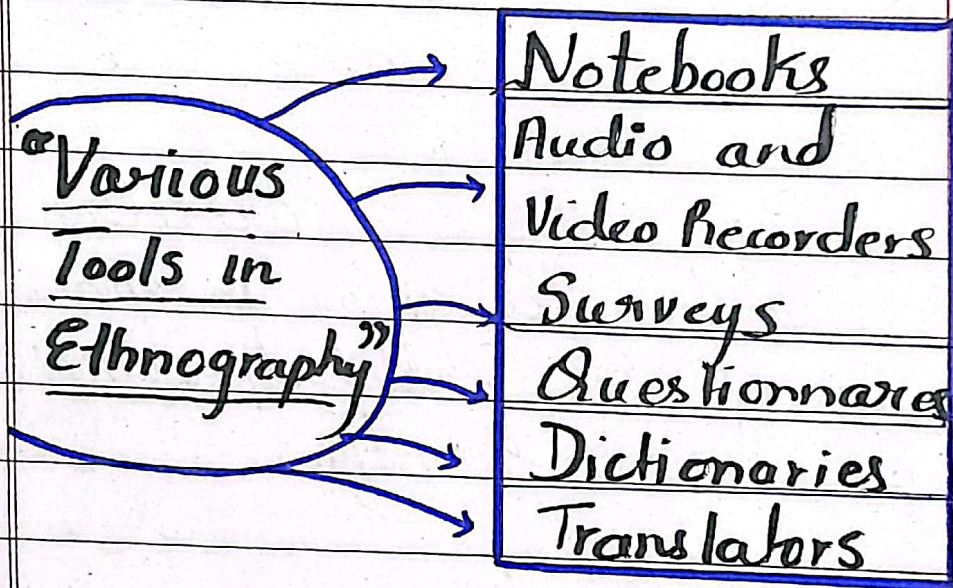 "Various
Tools in
Ethnography"
Notebooks
Audio and
Video Recorders
Surveys
Questionnares
Dictionaries
Translators